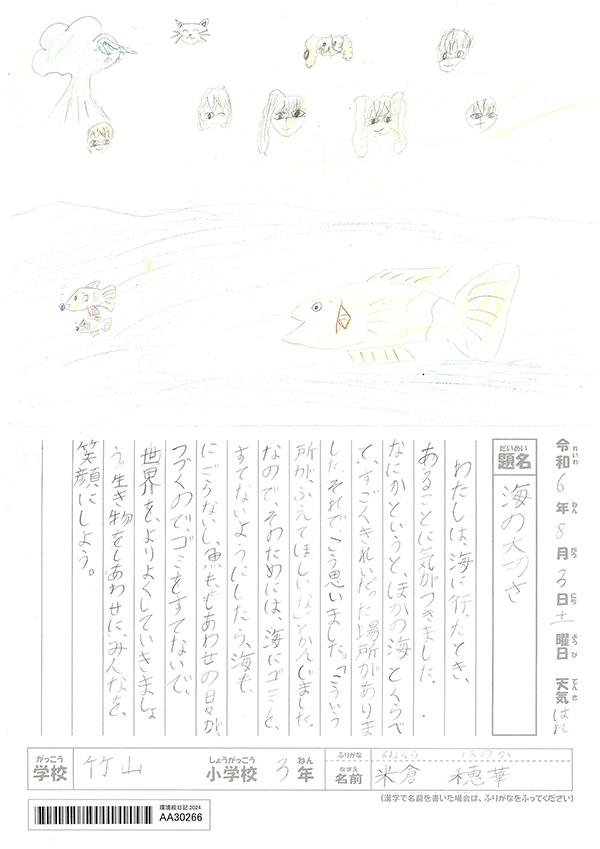 令和6年8月3日土曜日 天気 はれ
れいわ ねん がつ にち ようび てんき
だいめい
題名 海の大切さ
わたしは、海に行ったとき、
あることに気がつきました。
なにかというと、ほかの海とくらべ
て、すごくきれいだった場所がありま
した。それでこう思いました。「こういう
所が、ふえてほしいな」とかんじました。
なので、そのためには、海にゴミを、
すてないようにしたら、海も、
にごらないし、魚も、しあわせの日々が、
つづくのでゴミをすてないで、
世界を、よりよくしていきましょ
う。生き物をしあわせに、みんなを、
笑顔にしよう。
がっこう しょうがっこう ねん ふりがな よねくら ほのか
学校 竹山 小学校 3年 なまえ 名前 米倉 穂華
(漢字で名前を書いた場合は、ふりがなをふってください)
環境絵日記 2024
AA30266